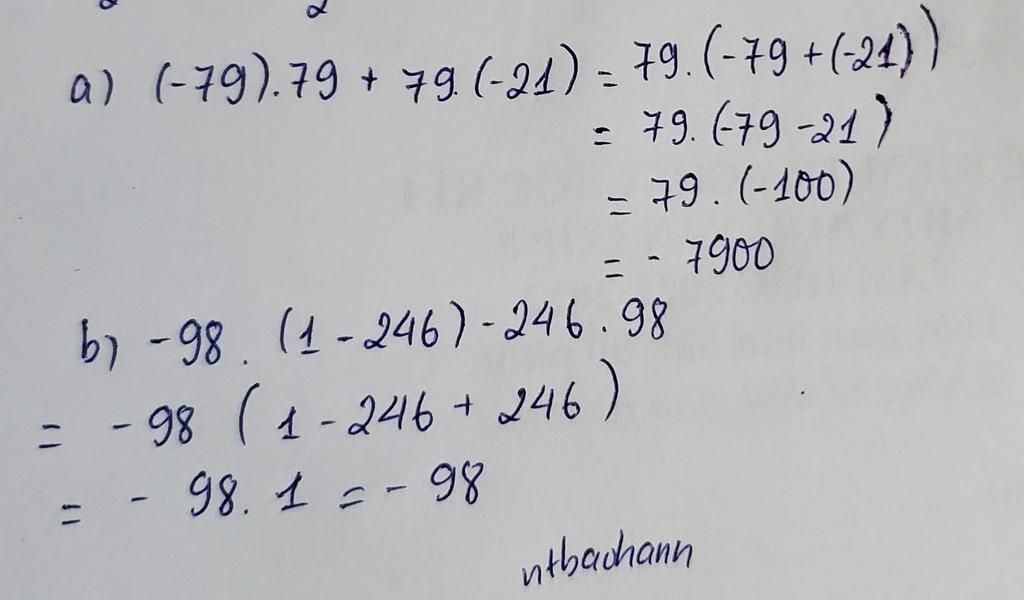 a) (-79).79 + 79.(-21) = 79.(-79+(-21))
= 79.(-79-21)
= 79.(-100)
= - 7900
b) -98.(1-246)-246.98
= -98(1-246+246)
= - 98.1 = - 98
ntbaohann